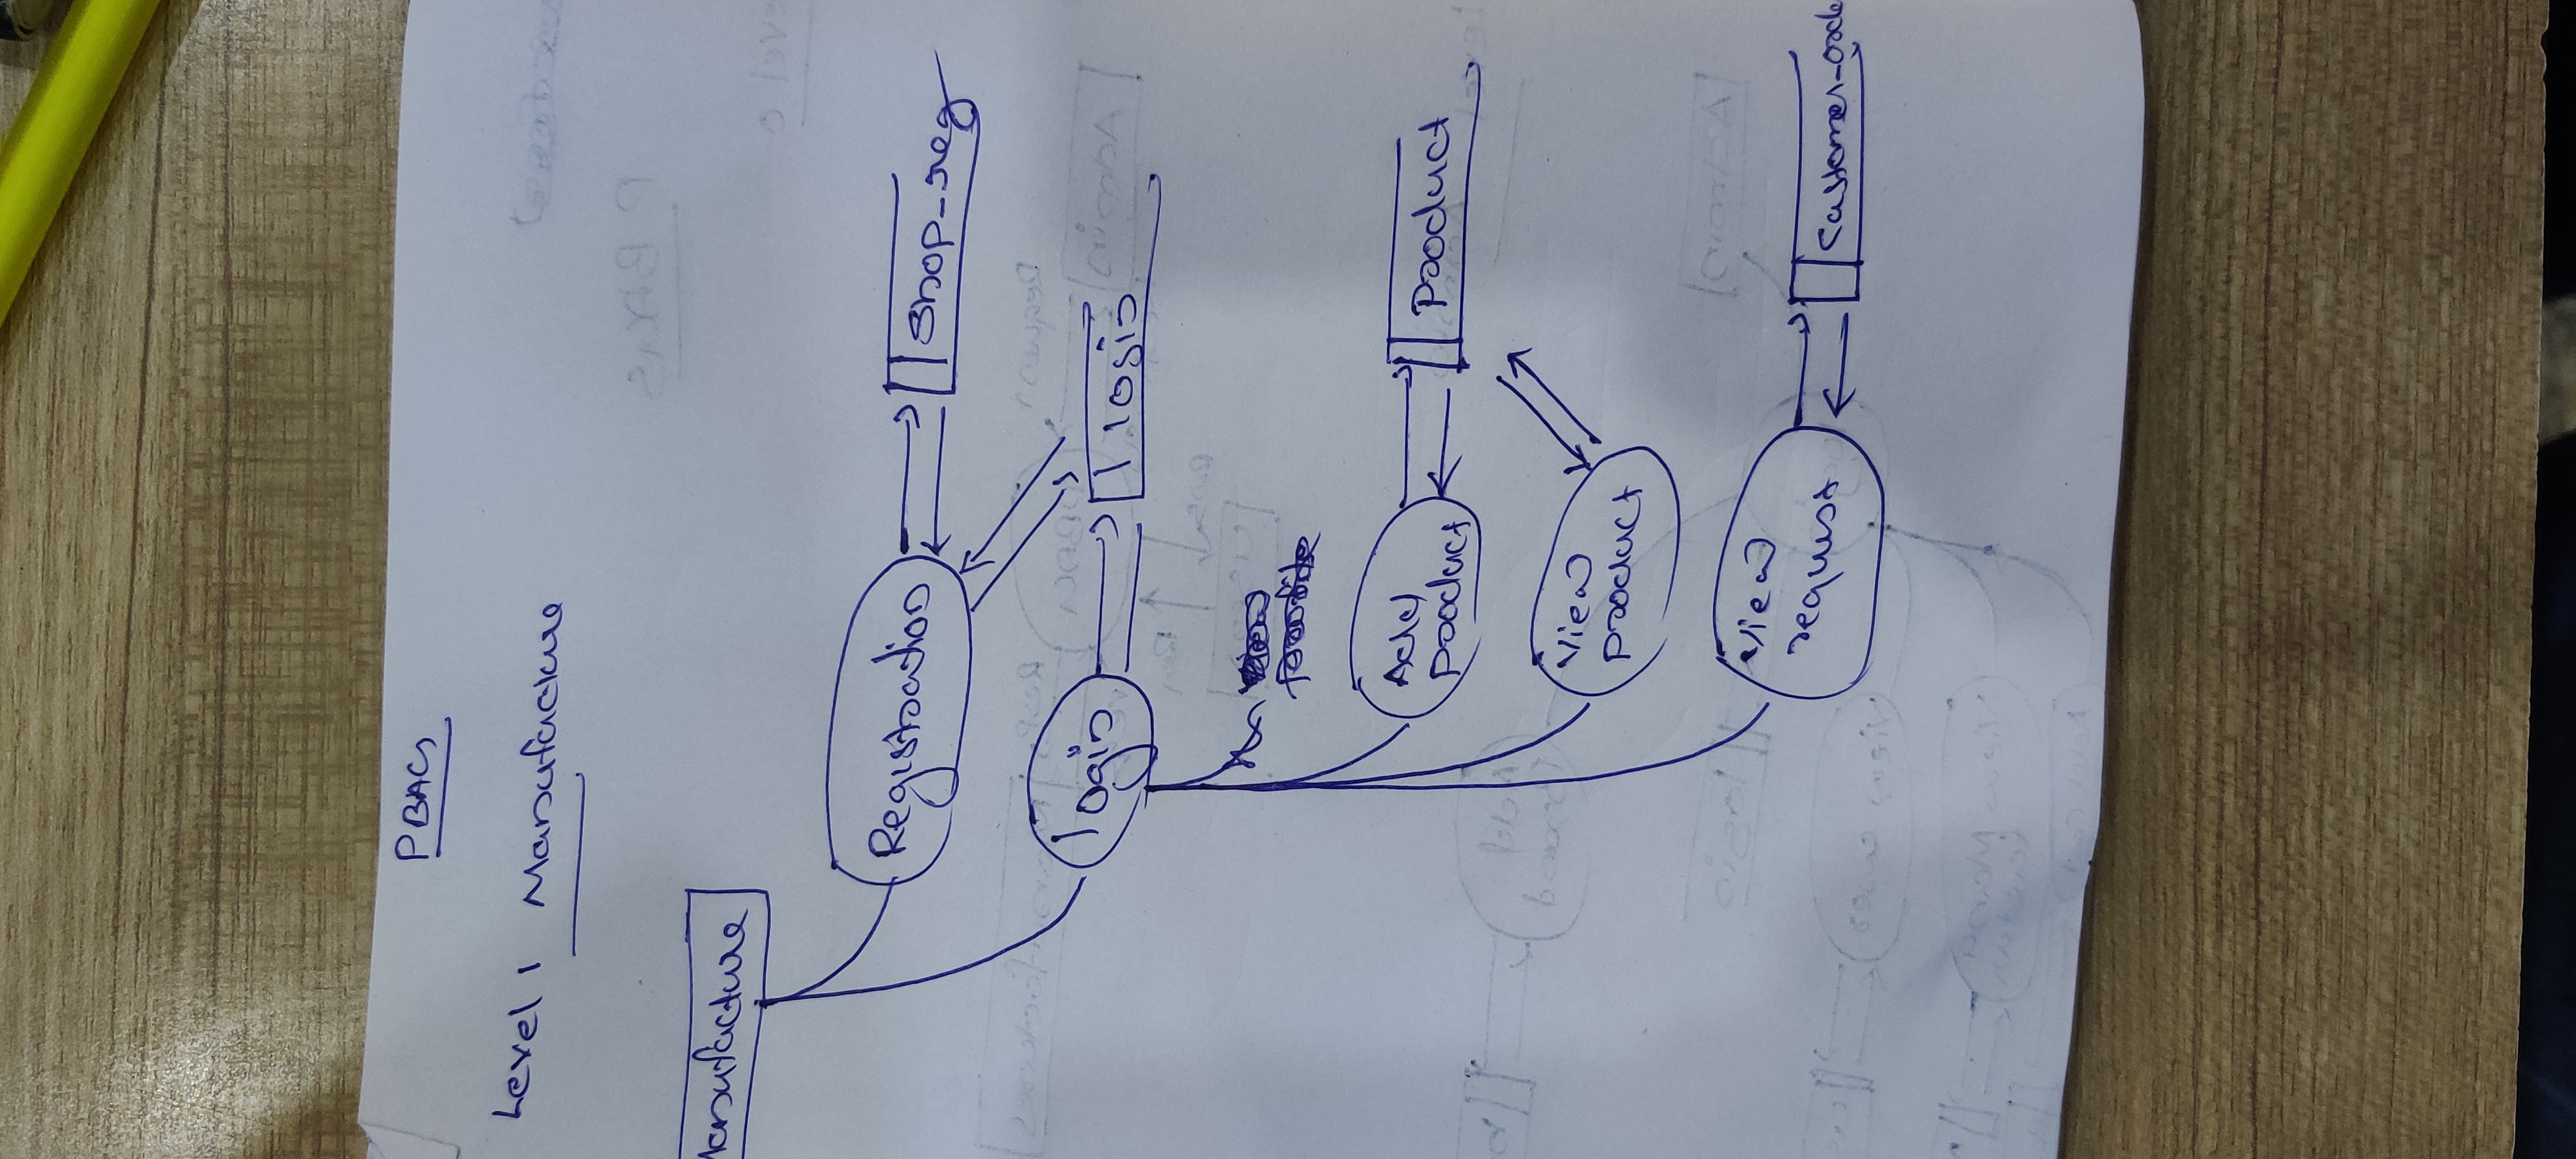 PBACS
Level 1 Manufacture
Manufacture
Registration
Shop_reg
login
login
Add
product
product
View
product
View
request
Customer_orde